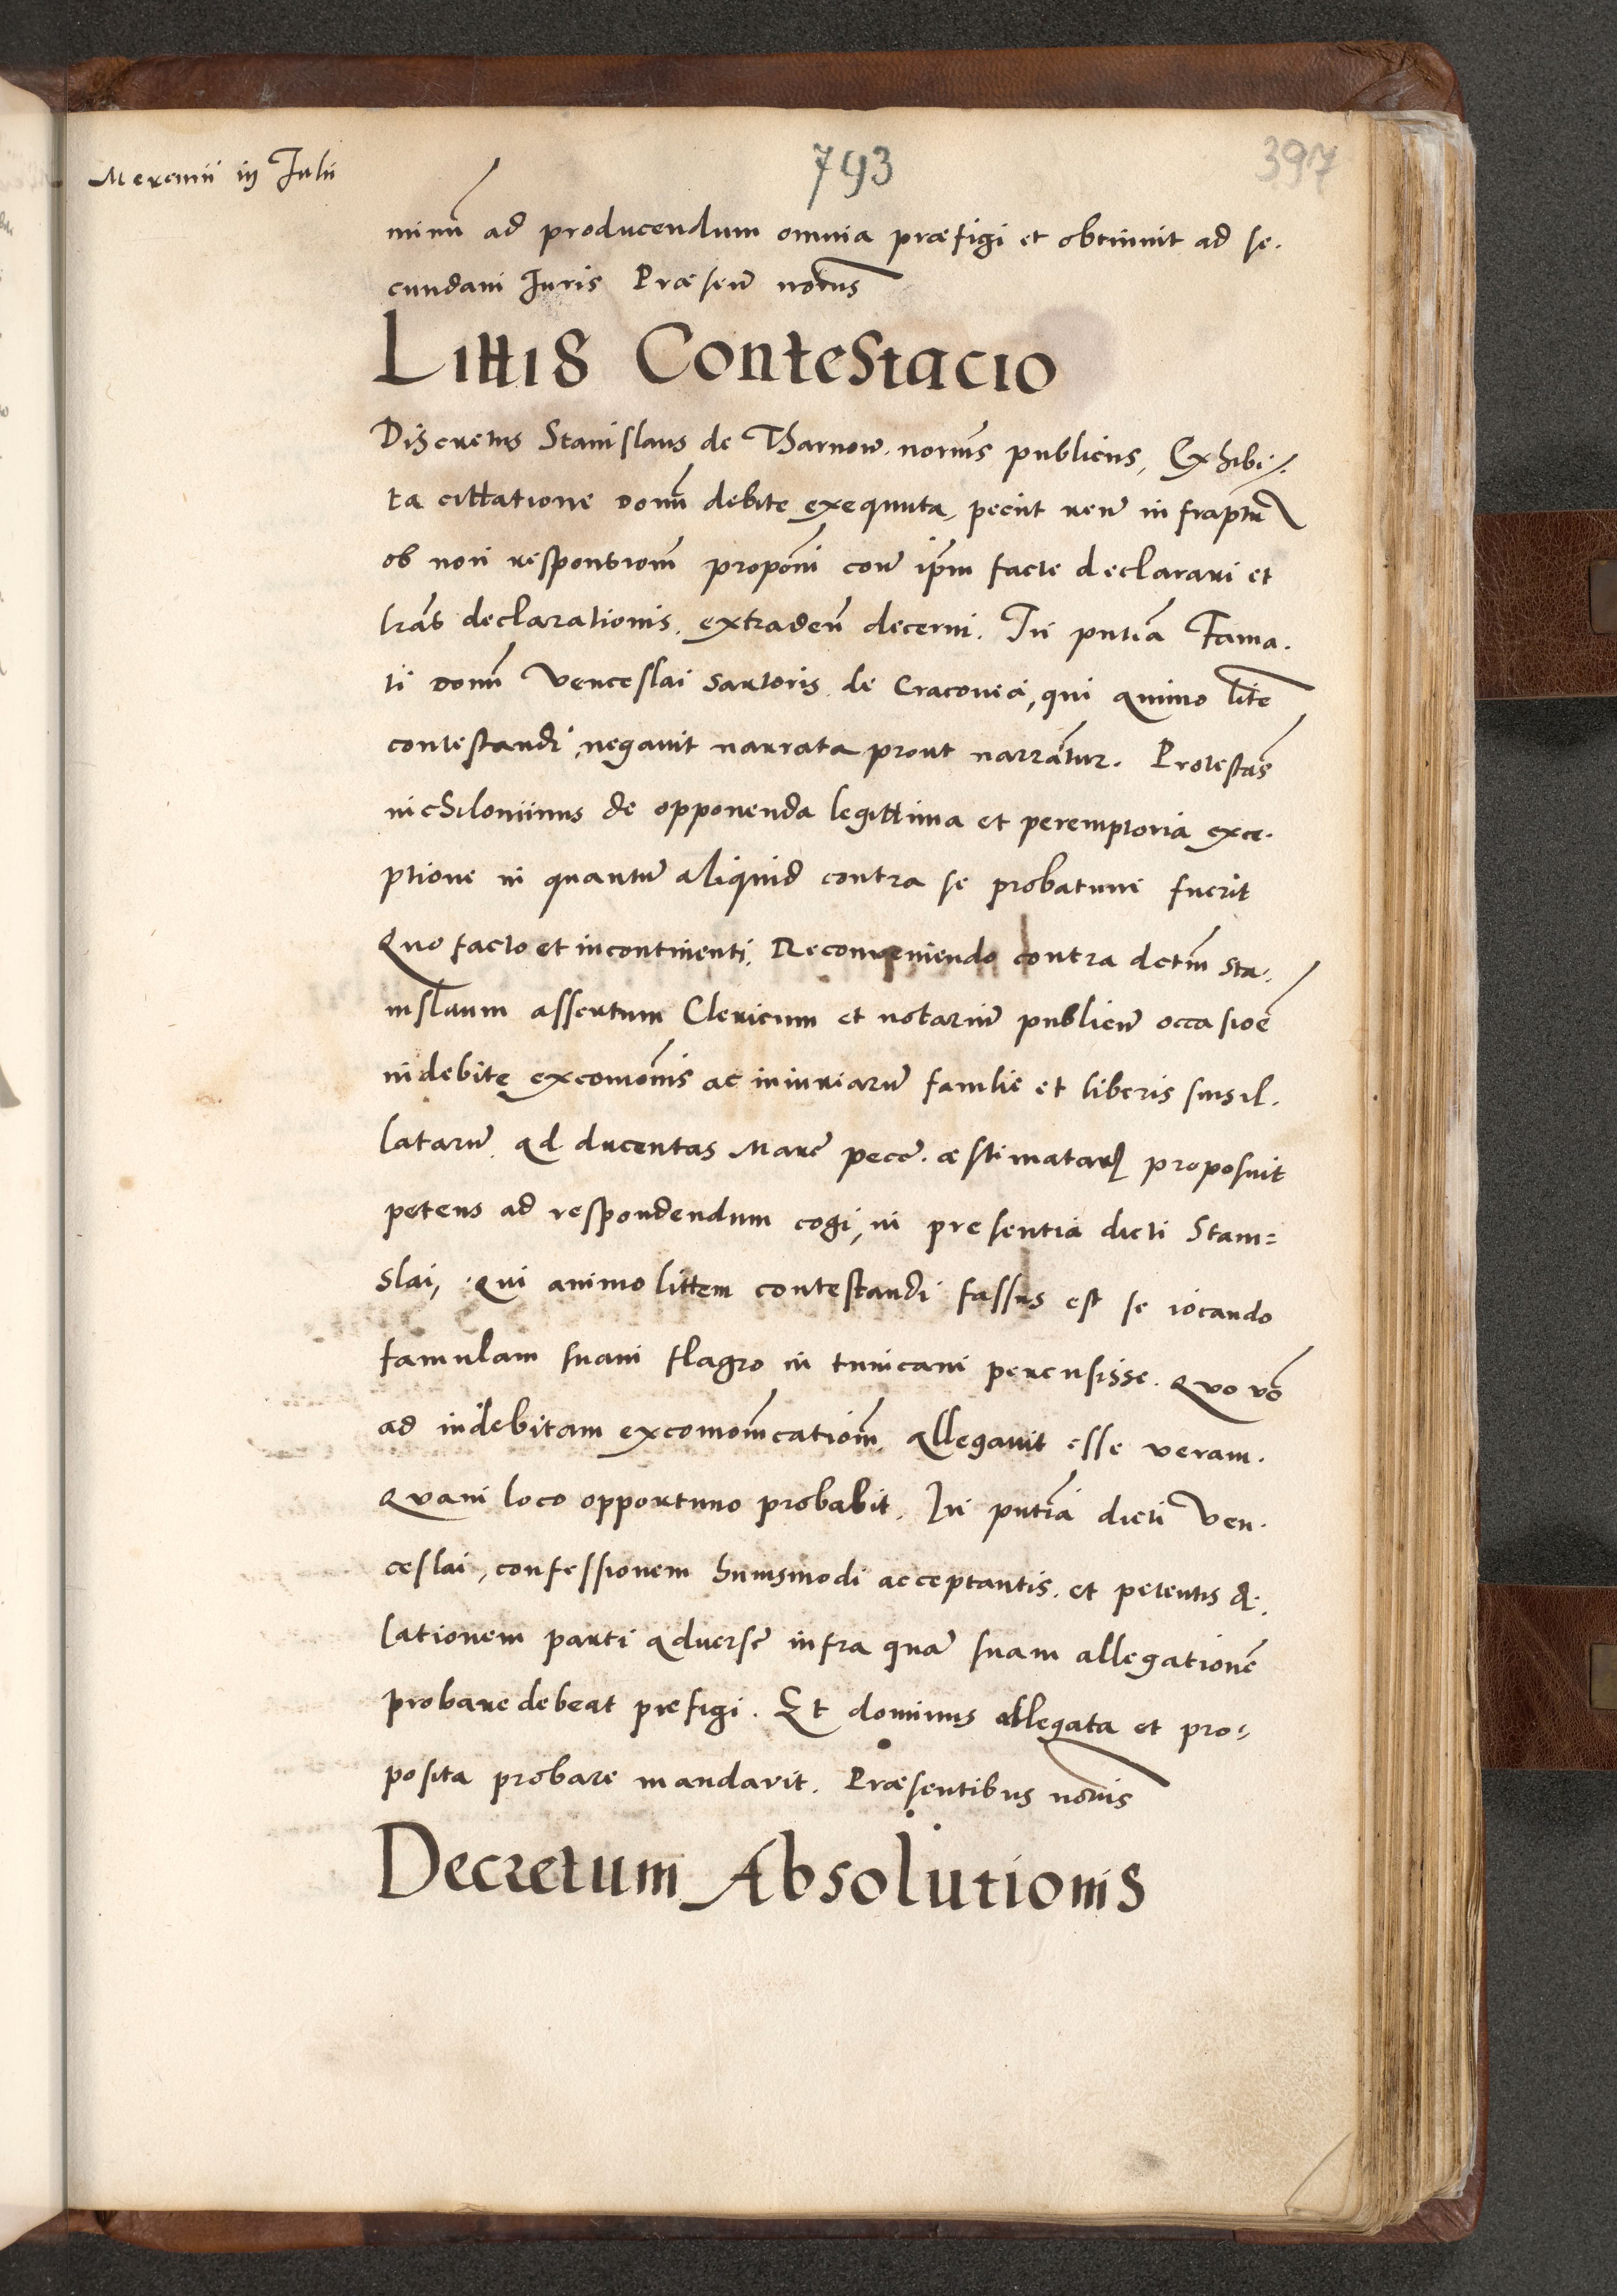 Mercurii iij Julii
793
397
minũ ad producendum omnia præfigi et obtinuit ad se.
cundam Juris Præsenῦ notus
Littis Contestacio
Discretus Stanislaus de Tharnow. notũs publicus, Exhibi
ta cittatione domῦ debite exequuta, peciit reũ infraptũ
ob non responsionẽ proponi conῦ ipm facte declarari et
lrãs declarationis. extradenῦ decerni. In pntiã Fama.
ti domῦ Venceslai Sartoris de Cracovia, qui animo lite
contestandi, negavit narrata prout narrãtur. Protestãs
nichilominus de opponenda legittima et peremptoria exce.
ptione in quantũ aliquid contra se probatum fuerit
Quo facto et incontinenti, Reconveniendo contra dctm Sta.
nislaum assertum Clericum et notariũ publicũ occasioẽ
indebite excomõnis ac iniuriarũ familie et liberis suis il.
latarũ ad ducentas Marc pecc. æstimatarꝝ proposuit
petens ad respondendum cogi, in presentia dicti Stani=
slai, Qui animo littem contestandi fassus est se iocando
famulam suam flagro in tunicam percusisse. Quo vō
ad indebitam excomonicationẽ allegavit esse veram.
Quam loco opportuno probabit. In pntiã dicti Ven.
ceslai, confessionem huiusmodi acceptantis. et petentis di.
lationem parti adverse infra quã suam allegationẽ
probare debeat prefigi. Et dominus allegata et pro,
posita probare mandavit. Præsentibus notis
Decretum Absolutionis